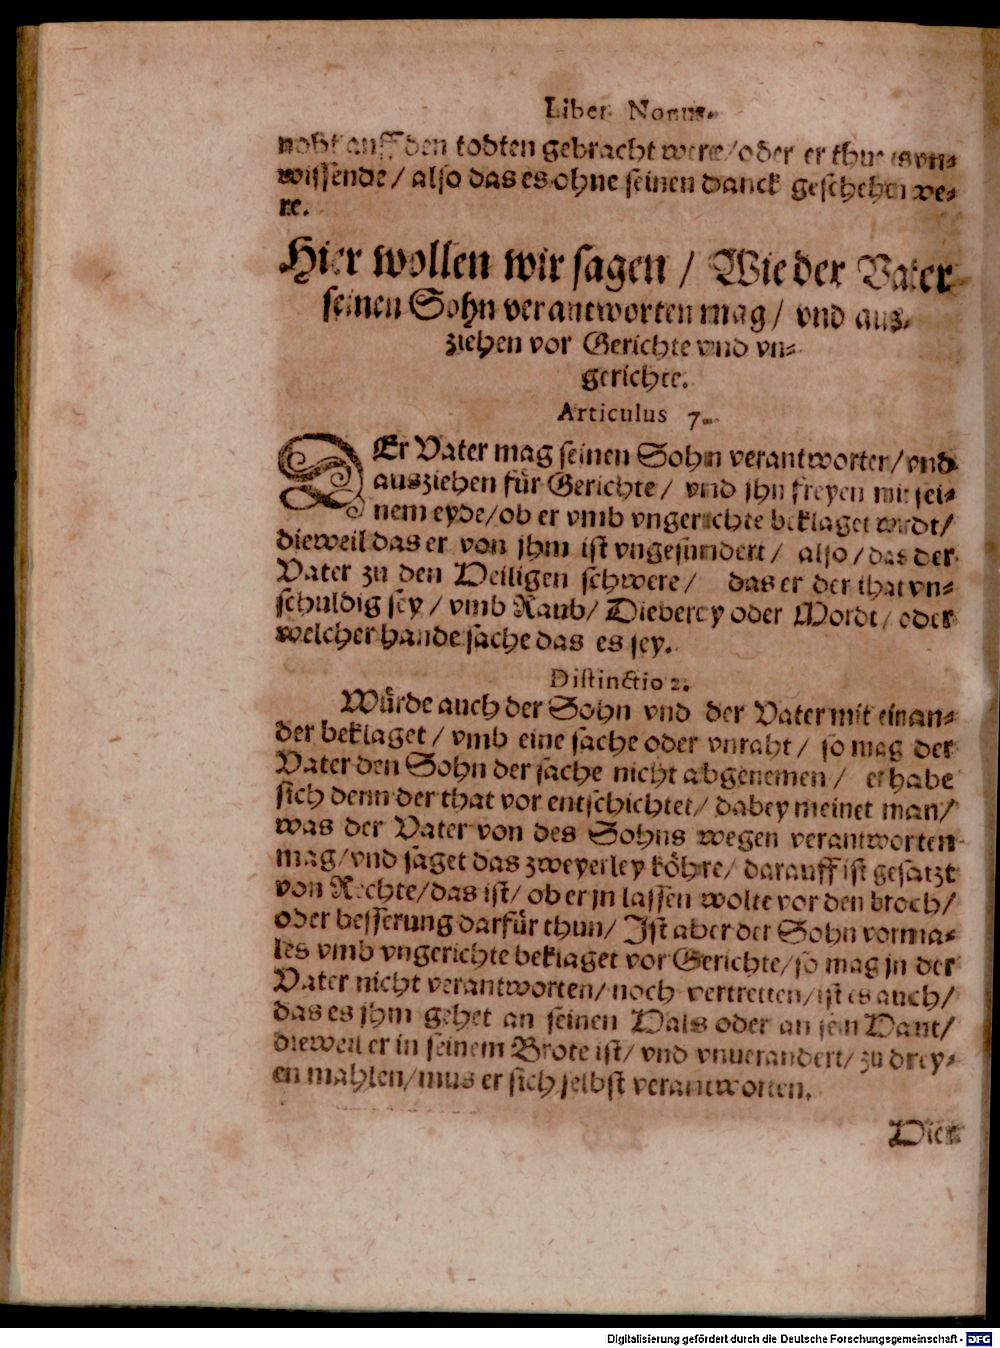 Liber Nonus.
noht auff den todten gebracht were/oder er thue es vn⸗
wissende/ also das es ohne seinen danck geschehen we⸗
re.
Hier wollen wir sagen / Wie der Vater
seinen Sohn verantworten mag/ vnd aus⸗
ziehen vor Gerichte vnd vn⸗
gerichte.
Articulus 7.
DEr Vater mag seinen Sohn verantworten/vnd
ausziehen für Gerichte/ vnd jhn freyen mit sei⸗
nem eyde/ob er vmb vngerichte beklaget wirdt/
dieweil das er von jhm ist vngesundert/ also/das der
Vater zu den Heiligen schwere/ das er der that vn⸗
schuldig sey/ vmb Raub/ Dieberey oder Mordt/ oder
welcher hande sache das es sey.
Distinctio 2.
Würde auch der Sohn vnd der Vater mit einan⸗
der beklaget/ vmb eine sache oder vnraht/ so mag der
Vater den Sohn der sache nicht abgenemen/ er habe
sich denn der that vor entschichtet/ dabey meinet man/
was der Vater von des Sohns wegen verantworten
mag/vnd saget das zweyerley köhre/ darauff ist gesatzt
von Rechte/das ist/ ob er jn lassen wolte vor den broch/
oder besserung darfür thun/ Ist aber der Sohn vorma⸗
les vmb vngerichte beklaget vor Gerichte/so mag jn der
Vater nicht verantworten/noch vertretten/ist es auch/
das es jhm gehet an seinen Hals oder an sein Hant/
dieweil er in seinem Brote ist/ vnd vnuerandert/ zu drey⸗
en mahlen/mus er sich selbst verantworten.
Hier
Digitalisierung gefördert durch die Deutsche Forschungsgemeinschaft - DFG